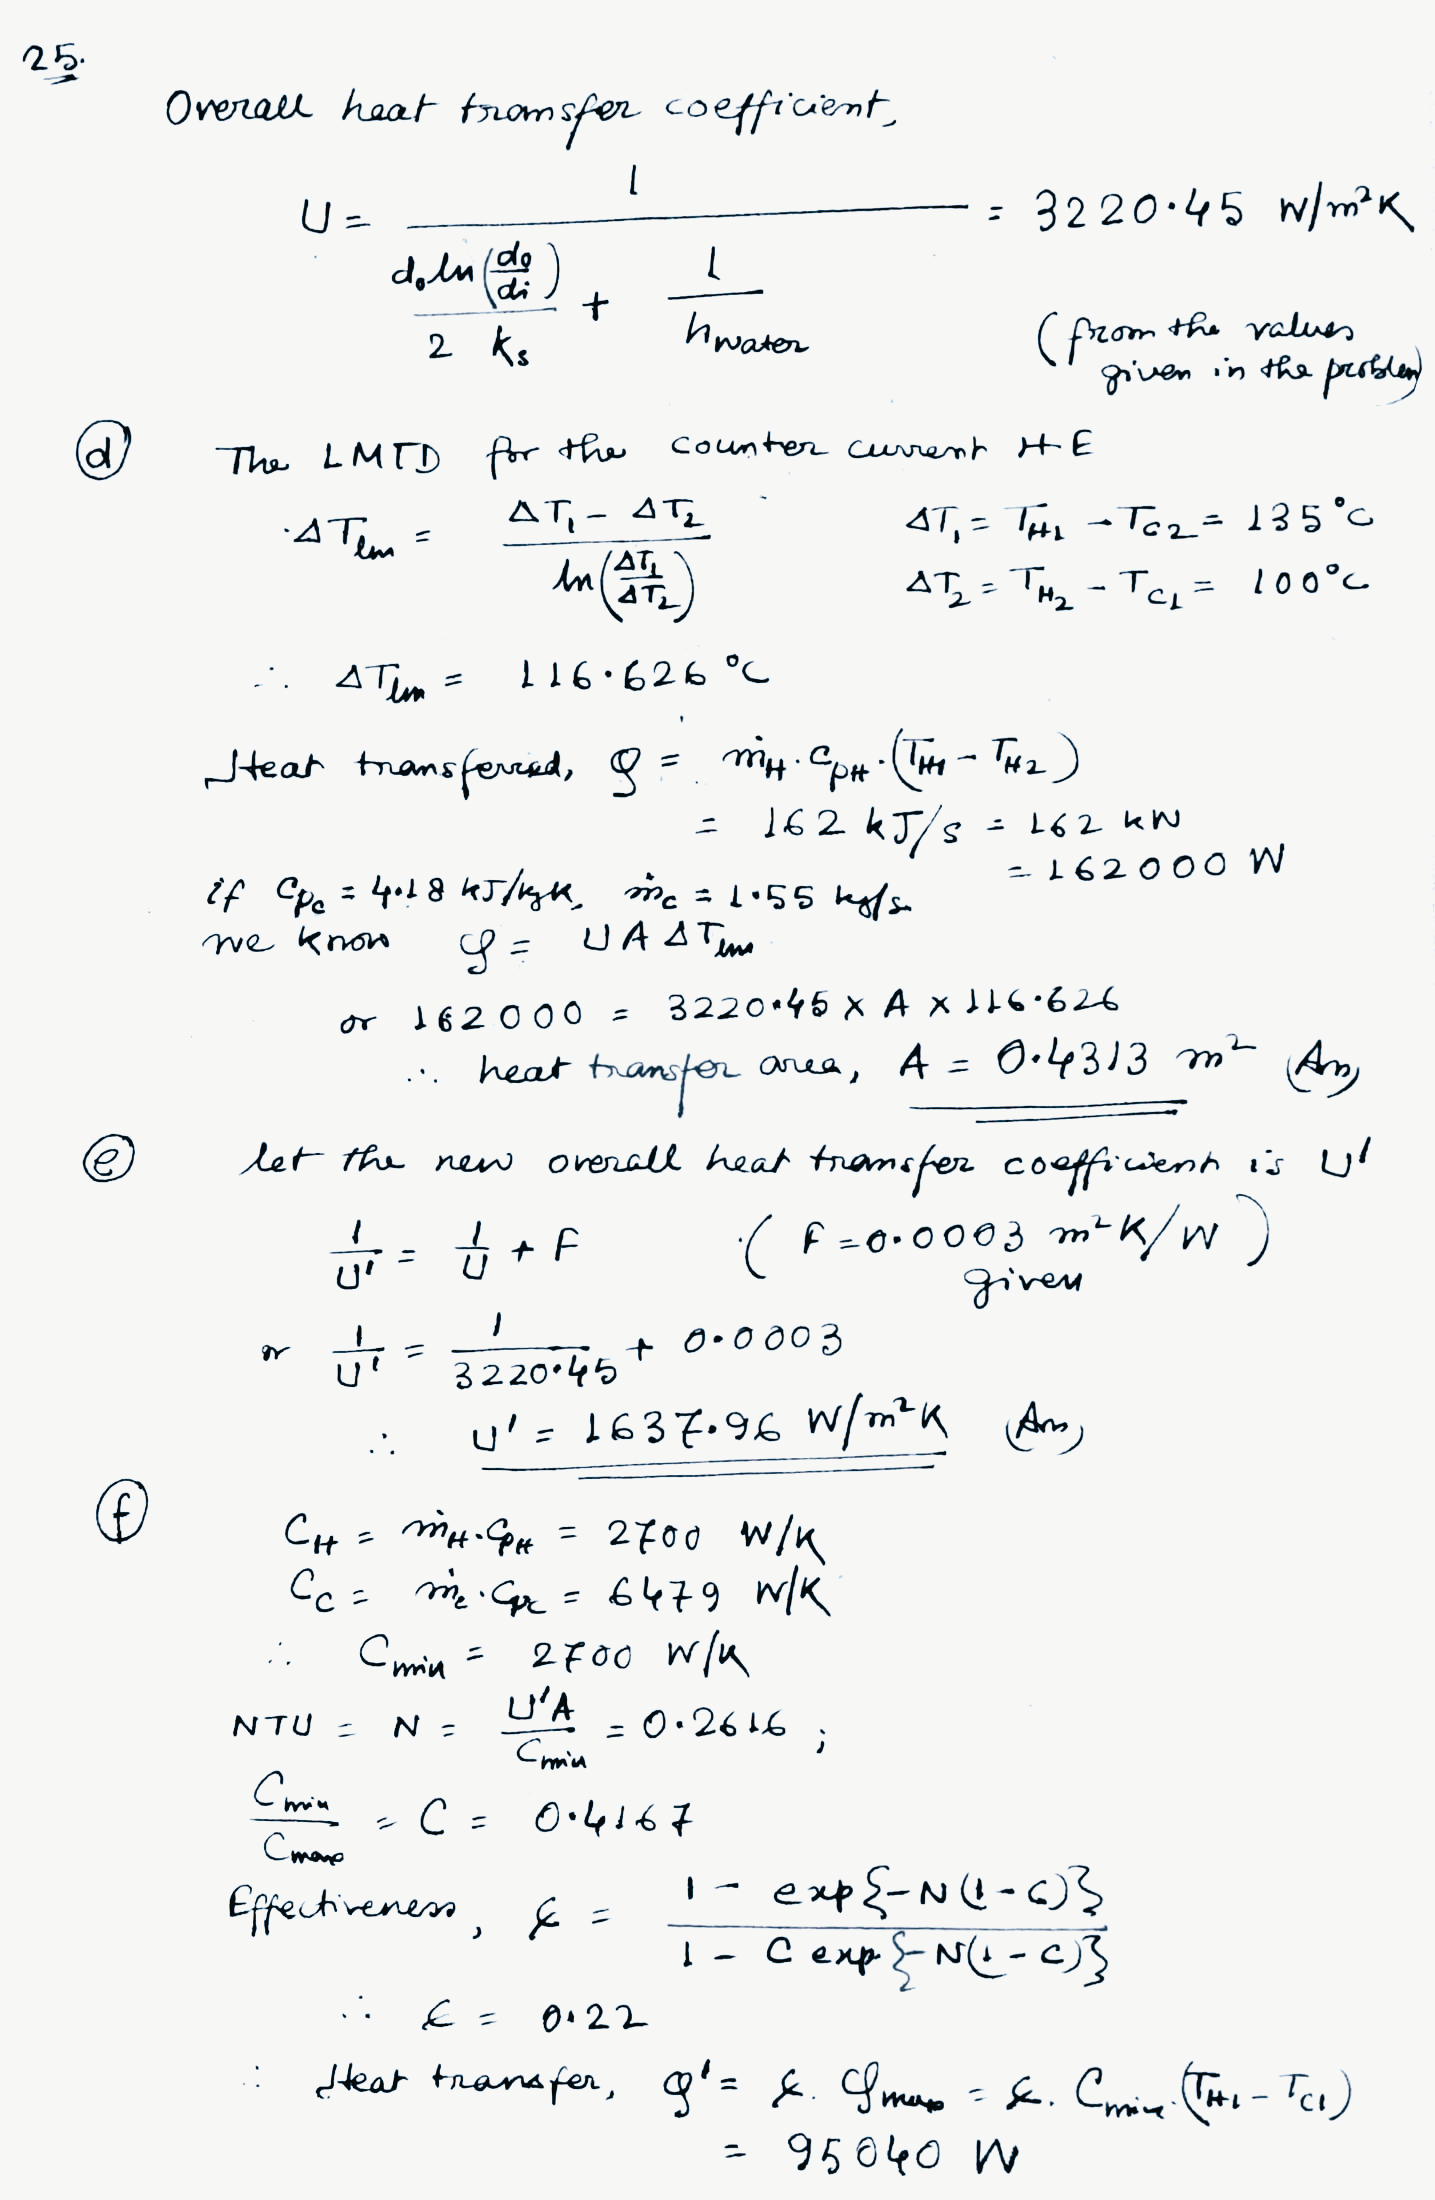 25.
Overall heat transfer coefficient,
U = 1 / (d₀ ln(d₀/di) / 2 ks + 1/hwater) = 3220.45 W/m²K
(from the values
given in the problem)
(d) The LMTD for the counter current HE
ΔTlm = (ΔT₁ - ΔT₂) / ln(ΔT₁/ΔT₂)
ΔT₁ = TH1 - TC2 = 135°C
ΔT₂ = TH2 - TC1 = 100°C
∴ ΔTlm = 116.626 °C
Heat transferred, Q = ṁH.CpH.(TH1 - TH2)
= 162 kJ/s = 162 kW
= 162000 W
if Cpc = 4.18 kJ/kgK, ṁc = 1.55 kg/s
we know Q = UAΔTlm
or 162000 = 3220.45 x A x 116.626
∴ heat transfer area, A = 0.4313 m² (Ans)
(e) let the new overall heat transfer coefficient is U'
1/U' = 1/U + F (F = 0.0003 m²K/W)
given
or 1/U' = 1/3220.45 + 0.0003
∴ U' = 1637.96 W/m²K (Ans)
(f) CH = ṁH.CpH = 2700 W/K
Cc = ṁc.Cpc = 6479 W/K
∴ Cmin = 2700 W/K
NTU = N = U'A/Cmin = 0.2616 ;
Cmin/Cmax = C = 0.4167
Effectiveness, ε = (1 - exp{-N(1-C)}) / (1 - C exp{-N(1-C)})
∴ ε = 0.22
∴ Heat transfer, Q' = ε. Qmax = ε. Cmin.(TH1 - TC1)
= 95040 W